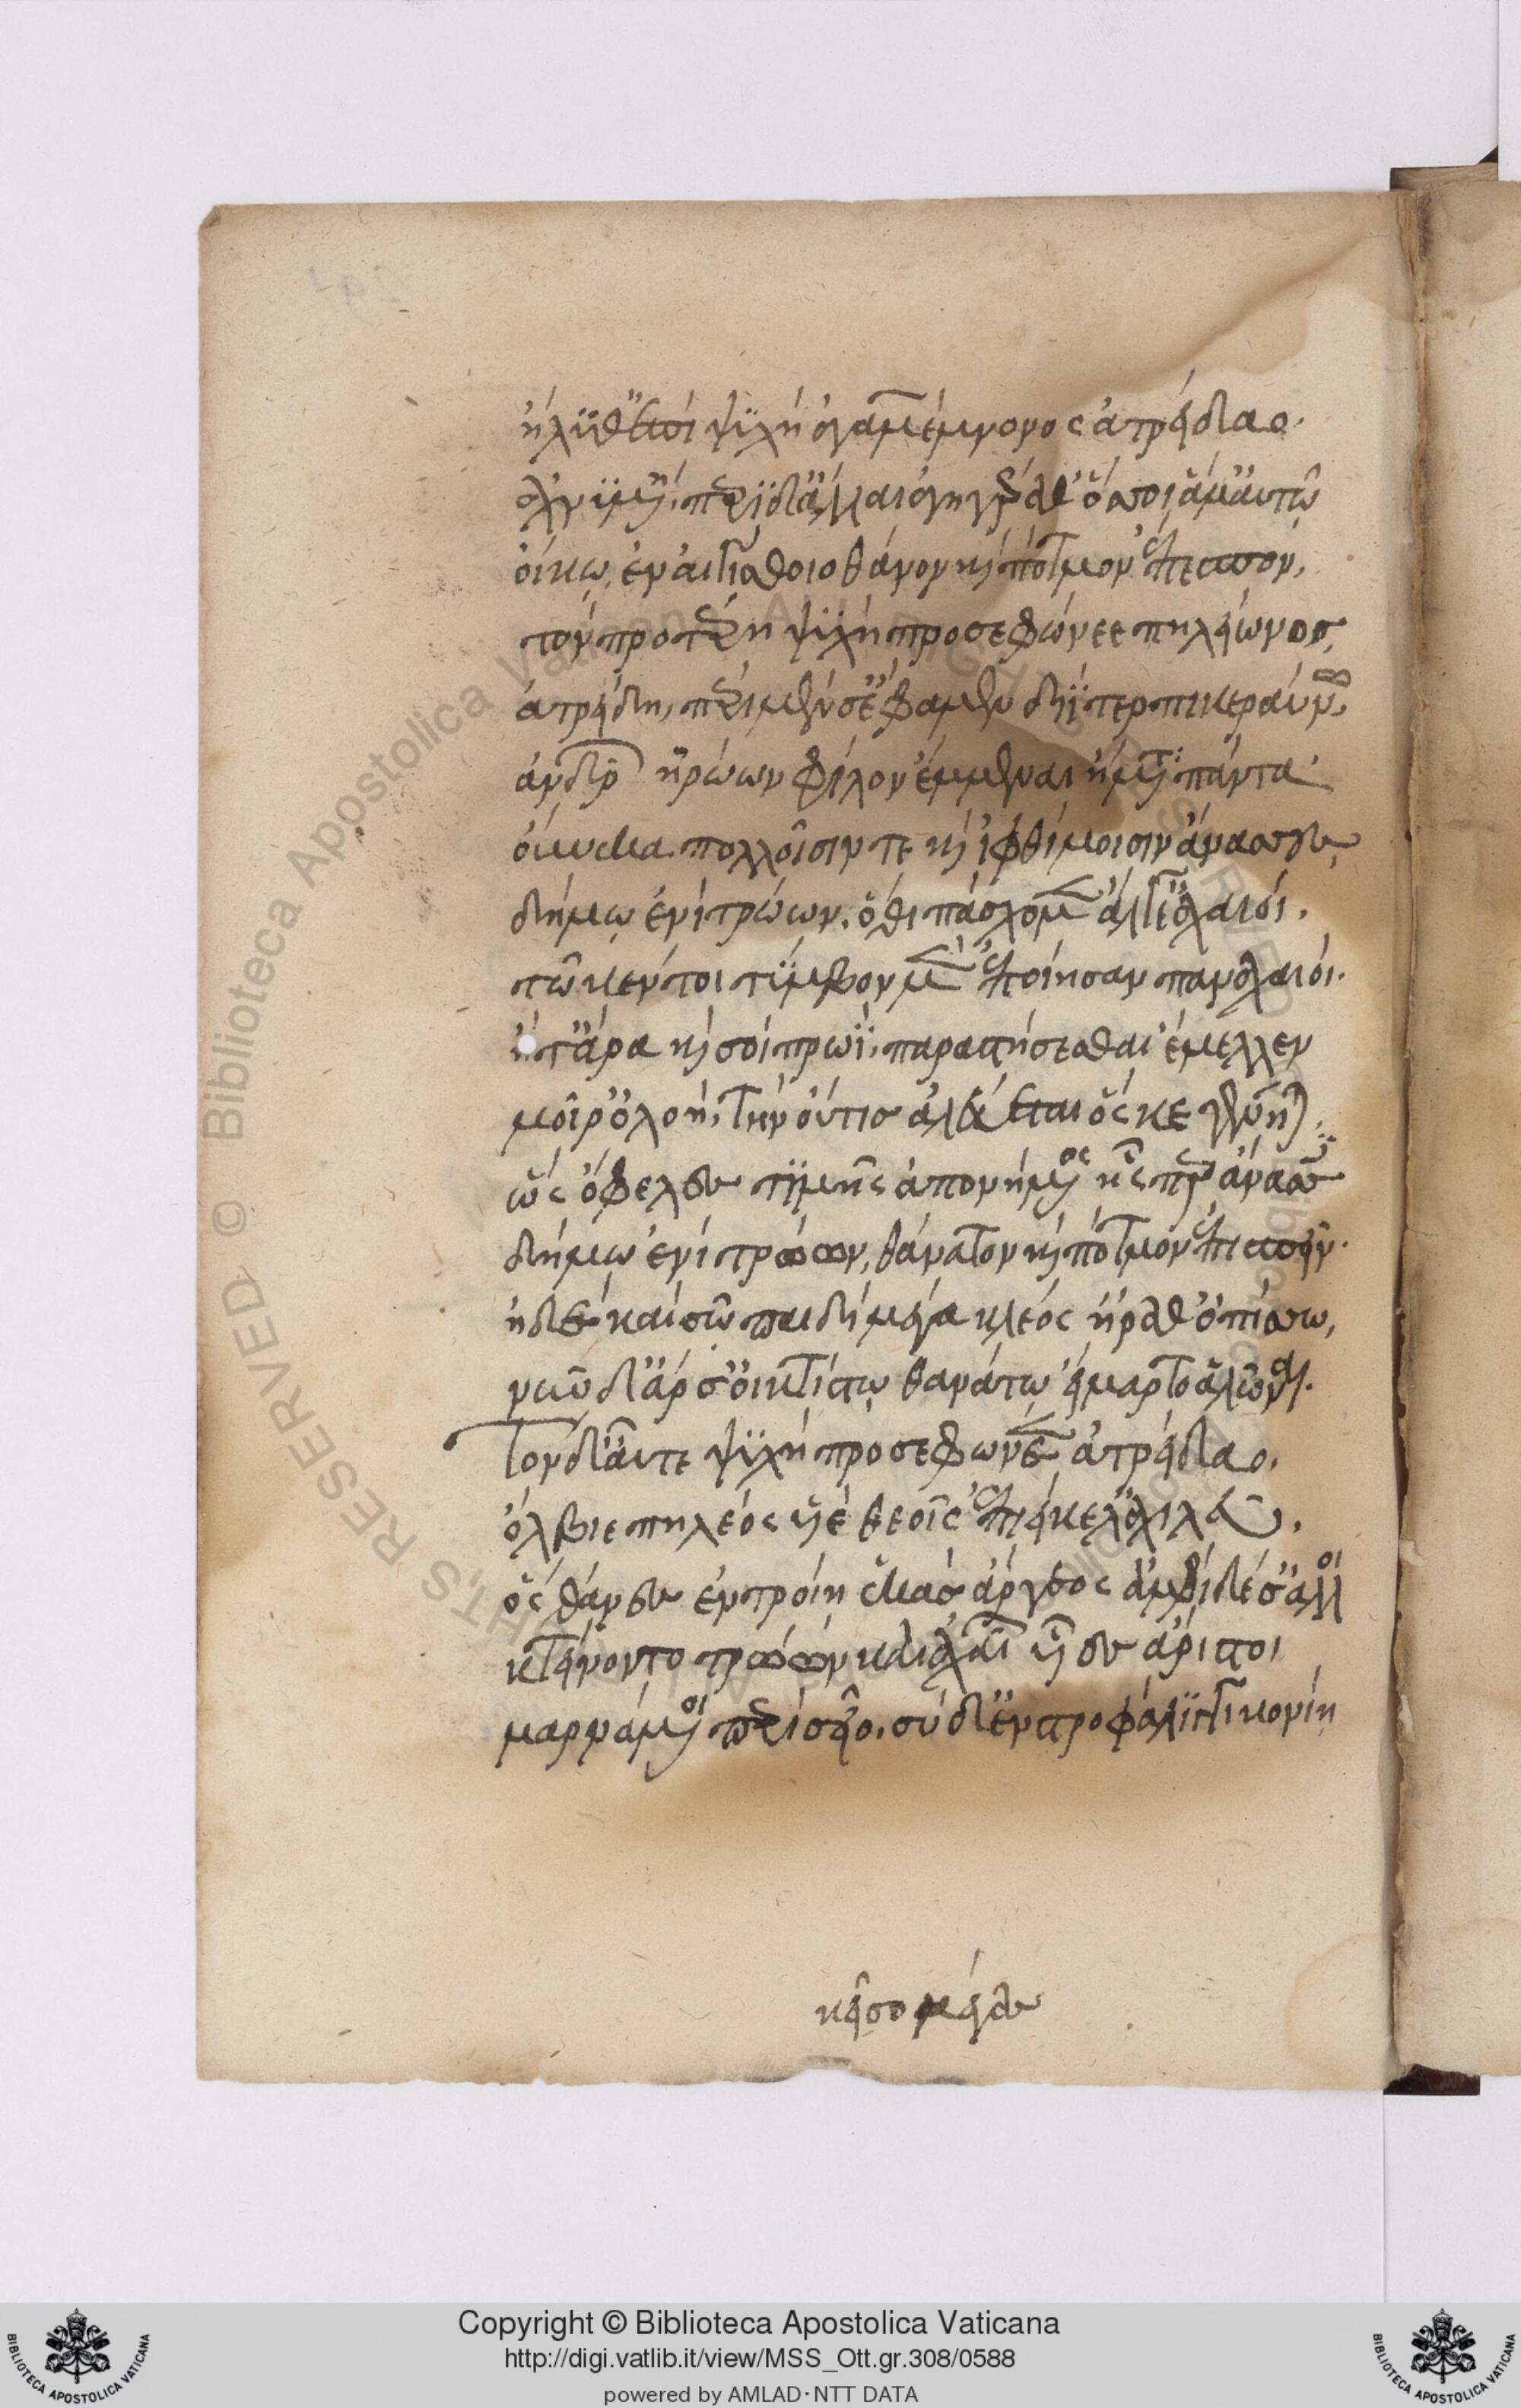 ἤλυθ' ἔπι ψυχὴ ἀγαμέμνονος ἀτρείδαο·
ἀχνυμένη· περὶ δ' ἄλλαι ἀγηγέραθ' ὅσσοι ἅμ' αὐτῷ
οἴκῳ ἐν αἰγίσθοιο θάνον καὶ πότμον ἐπέσπον,
τὸν προτέρη ψυχὴ προσεφώνεε πηλείωνος,
ἀτρείδη, περὶ μέν σ' ἔφαμεν διῒ τερπικεραύνω,
ἀνδρῶν ἡρώων φίλον ἔμμεναι ἤματα πάντα·
οὕνεκα πολλοῖσίν τε καὶ ἰφθίμοισιν ἄνασσες,
δήμω ἐνὶ τρώων, ὅθι πάσχομεν ἄλγε' ἀχαιοί.
τῶ κέν τοι τύμβον μὲν ἐποίησαν παναχαιοί.
ἦ τ' ἄρα καὶ σοὶ πρωῒ παραστήσεσθαι ἔμελλεν
μοῖρ' ὀλοή, τὴν οὔτις ἀλεύεται ὅς κε γένηται,
ὡς ὄφελες τιμῆς ἀπονήμενος ἧς περ ἄνασσες
δήμω ἐνὶ τρώων, θάνατον καὶ πότμον ἐπισπεῖν·
ἠδέ κε καὶ σῶ παιδὶ μέγα κλέος ἤραθ' ὀπίσσω,
νῦν δ' ἄρα σ' οἰκτίστω θανάτω εἵμαρτο ἁλῶναι.
Τὸν δ' αὖτε ψυχὴ προσεφώνεεν ἀτρείδαο.
ὄλβιε πηλέος υἱὲ θεοῖς ἐπιείκελ' ἀχιλλεῦ,
ὃς θάνες ἐν τροίη ἑκὰς ἄργεος ἀμφὶ δέ σ' ἄλλοι
κτείνοντο τρώων καὶ ἀχαιῶν υἷες ἄριστοι
μαρνάμενοι περὶ σεῖο. σὺ δ' ἐν στροφάλιγγι κονίη
κεῖσο μέγας
Copyright © Biblioteca Apostolica Vaticana
http://digi.vatlib.it/view/MSS_Ott.gr.308/0588
powered by AMLAD·NTT DATA